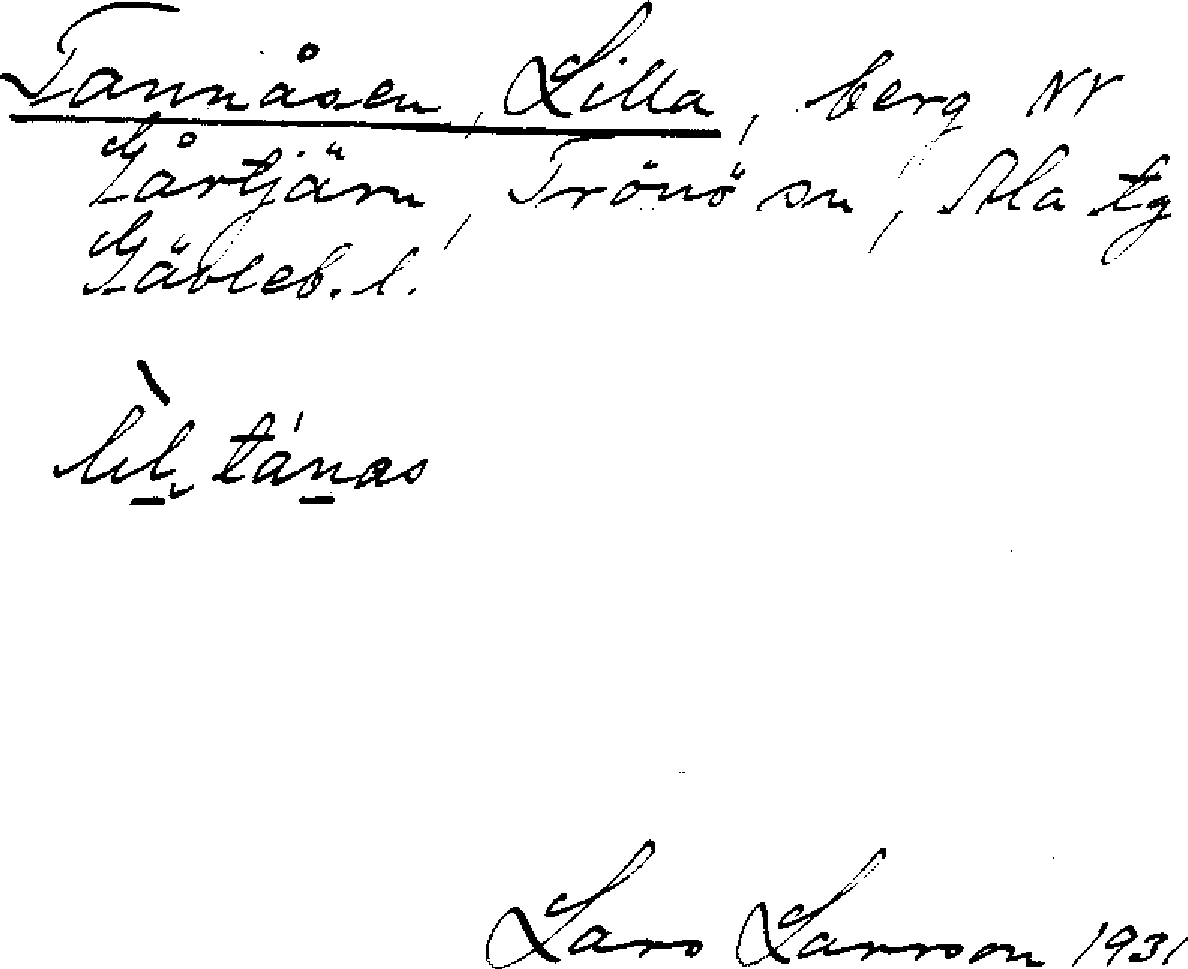 Tannåsen, Lilla, berg NV
Gårtjärn, Trönö sn, Ala tg
Gävleb. l.
lil, tánas
Lars Larsson 1931